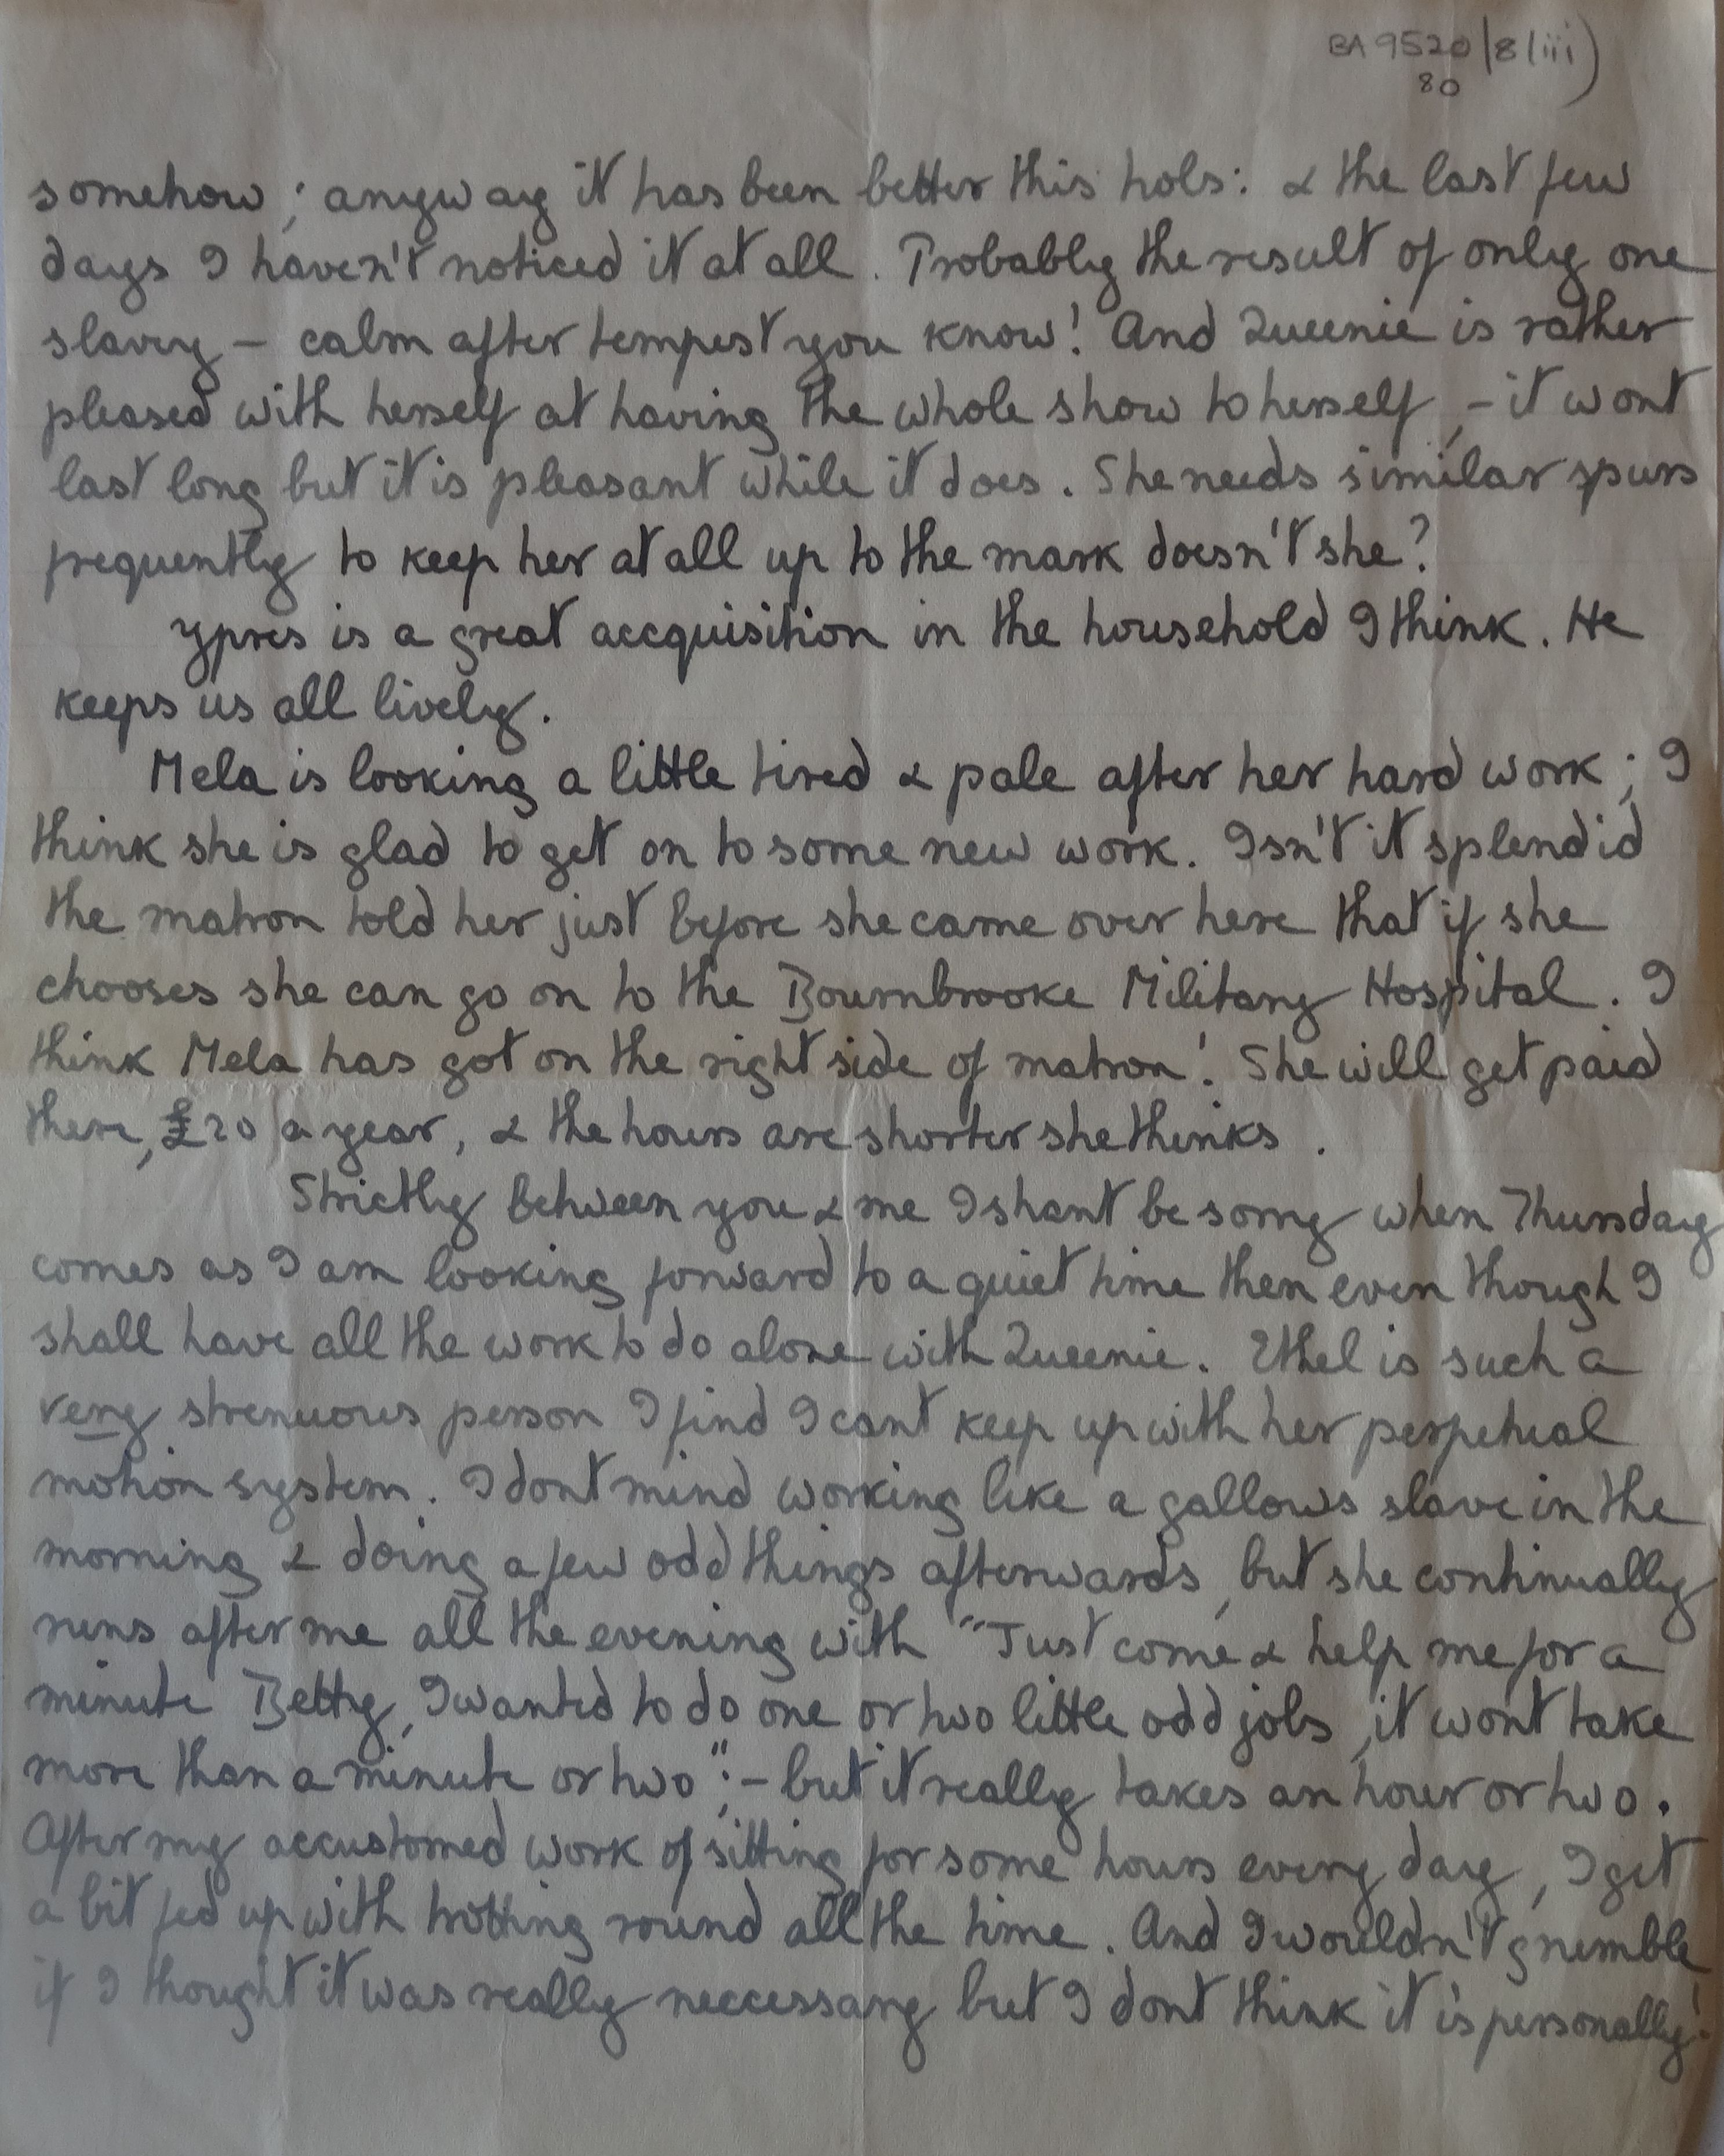 BA 9520/8/iii)
80
somehow; anyway it has been better this hols: & the last few
days I haven't noticed it at all. Probably the result of only one
slavey – calm after tempest you know! And Queenie is rather
pleased with herself at having the whole show to herself, – it wont
last long but it is pleasant while it does. She needs similar spurs
frequently to keep her at all up to the mark doesn't she?
Ypres is a great accquisition in the household I think. He
keeps us all lively.
Mela is looking a little tired & pale after her hard work; I
think she is glad to get on to some new work. Isn't it splendid
the matron told her just before she came over here that if she
chooses she can go on to the Bournbrooke Military Hospital. I
think Mela has got on the right side of matron! She will get paid
there, £20 a year, & the hours are shorter she thinks.
Strictly between you & me I shant be sorry when Thursday
comes as I am looking forward to a quiet time then even though I
shall have all the work to do alone with Queenie. Ethel is such a
very strenuous person I find I cant keep up with her perpetual
motion system. I dont mind working like a gallows slave in the
morning & doing a few odd things afterwards, but she continually
runs after me all the evening with "Just come & help me for a
minute Betty, I wanted to do one or two little odd jobs, it wont take
more than a minute or two"; – but it really takes an hour or two.
After my accustomed work of sitting for some hours every day, I get
a bit fed up with trotting round all the time. And I wouldn't grumble
if I thought it was really neccessary but I dont think it is personally!